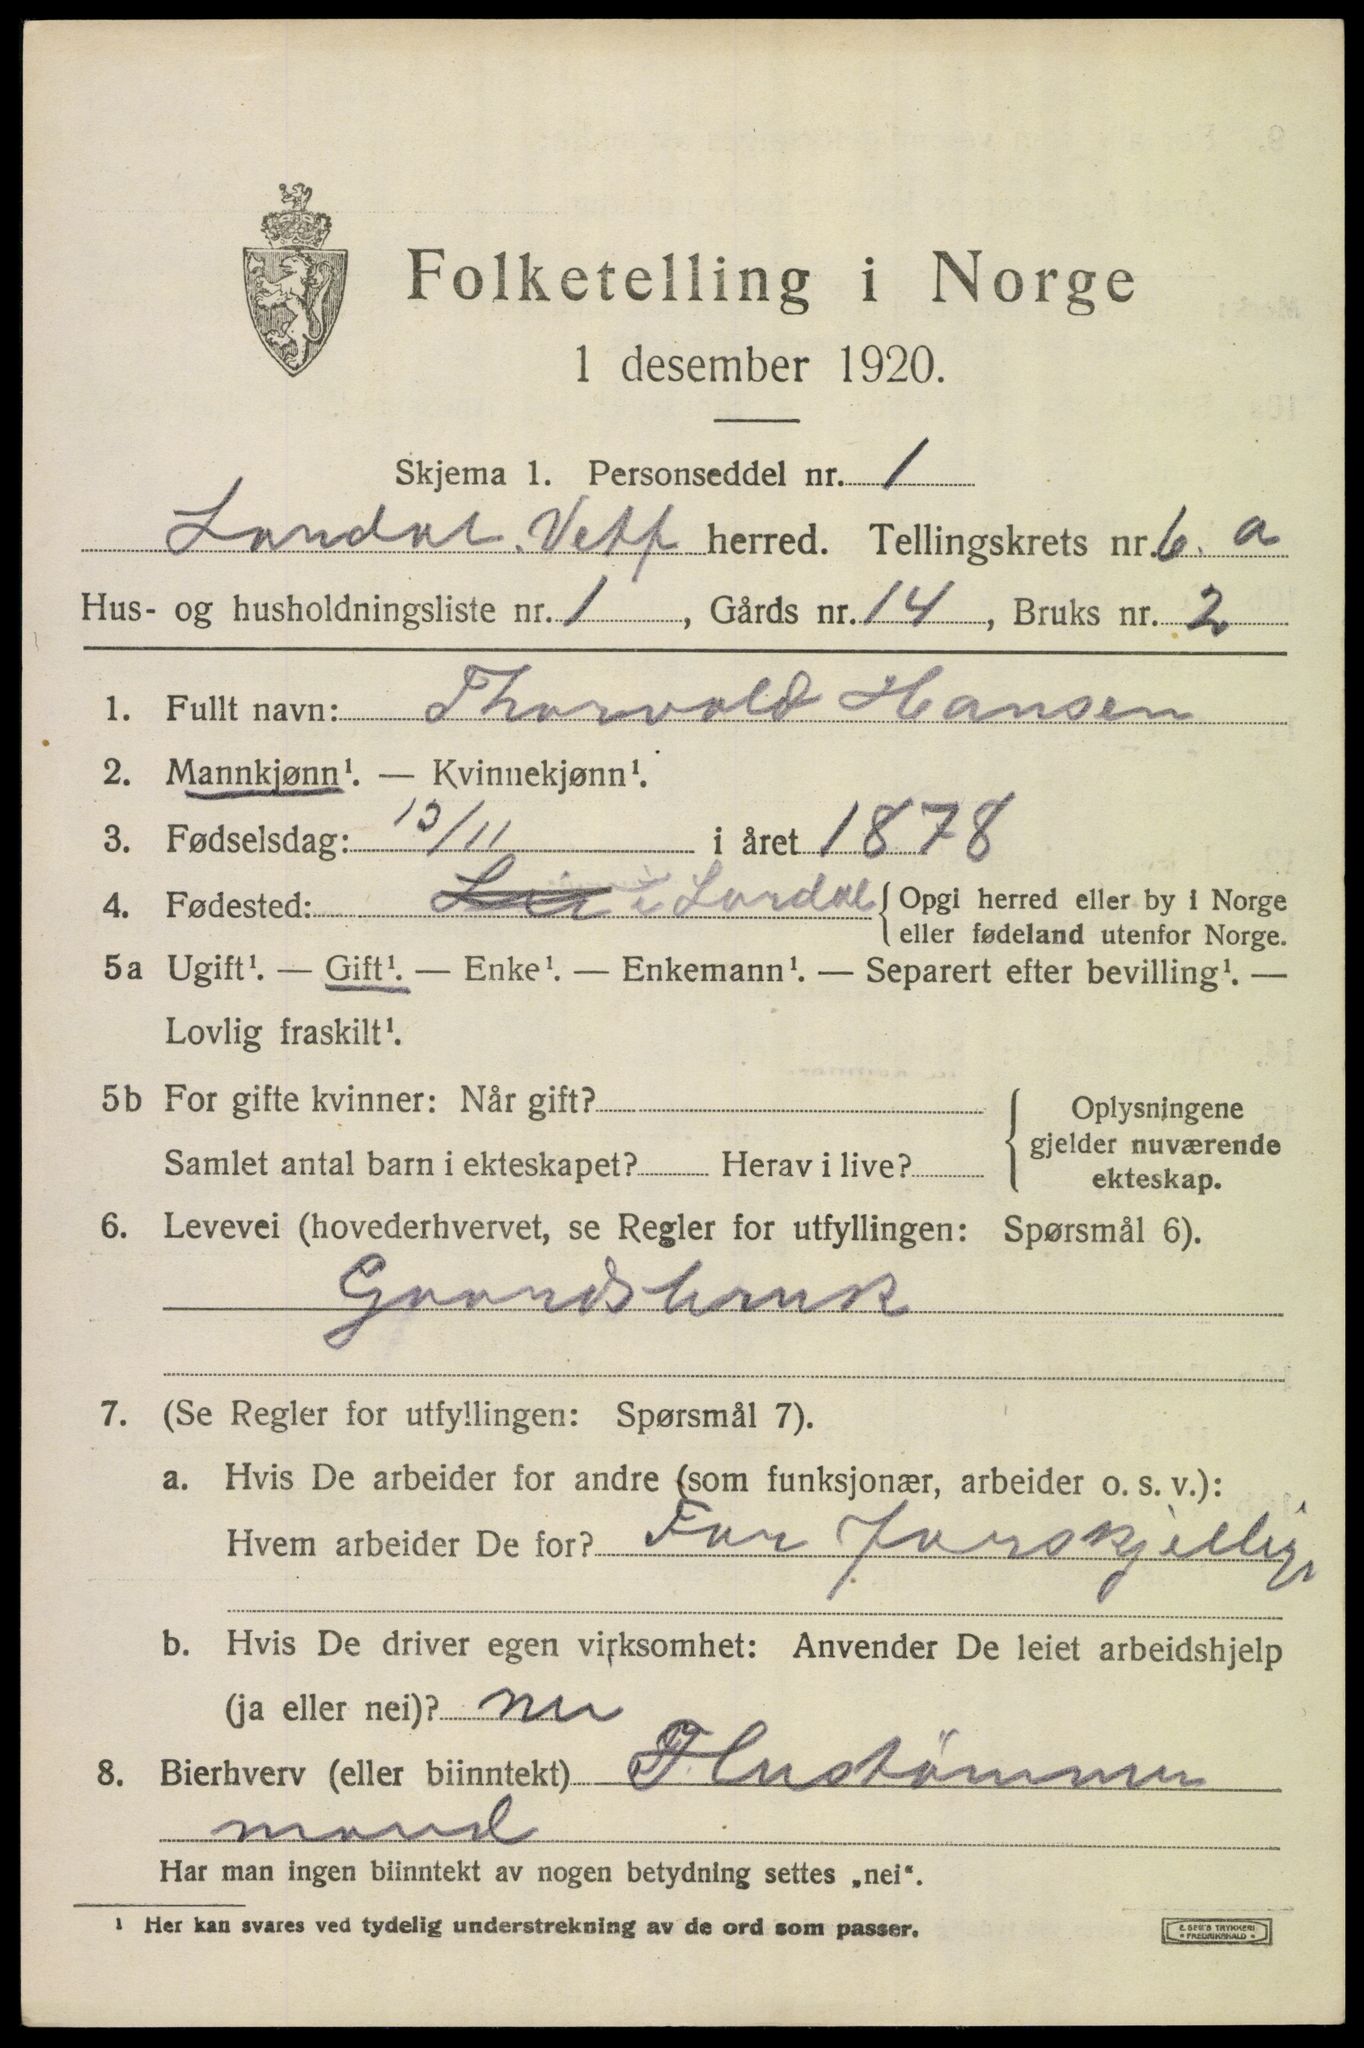 Folketelling i Norge
1 desember 1920.
Skjema 1. Personseddel nr. 1
Lardal. herred. Tellingskrets nr. 6. a
Hus- og husholdningsliste nr. 1, Gårds nr. 14, Bruks nr. 2
1. Fullt navn: Thorvald Hansen
2. Mannkjønn¹. — Kvinnekjønn¹.
3. Fødselsdag: /11 i året 1878
4. Fødested: i Lardal { Opgi herred eller by i Norge
eller fødeland utenfor Norge.
5a Ugift¹. — Gift¹. — Enke¹. — Enkemann¹. — Separert efter bevilling¹. —
Lovlig fraskilt¹.
5b For gifte kvinner: Når gift?
Samlet antal barn i ekteskapet? Herav i live?
{ Oplysningene
gjelder nuværende
ekteskap.
6. Levevei (hovederhvervet, se Regler for utfyllingen: Spørsmål 6).
Gaardsbruk
7. (Se Regler for utfyllingen: Spørsmål 7).
a. Hvis De arbeider for andre (som funksjonær, arbeider o. s. v.):
Hvem arbeider De for? For forskjellige
b. Hvis De driver egen virksomhet: Anvender De leiet arbeidshjelp
(ja eller nei)? nei
8. Bierhverv (eller biinntekt) Hustømmer
mand
Har man ingen biinntekt av nogen betydning settes „nei“.
¹ Her kan svares ved tydelig understrekning av de ord som passer.
E. SEM'S TRYKKERI
* FREDRIKSHALD *